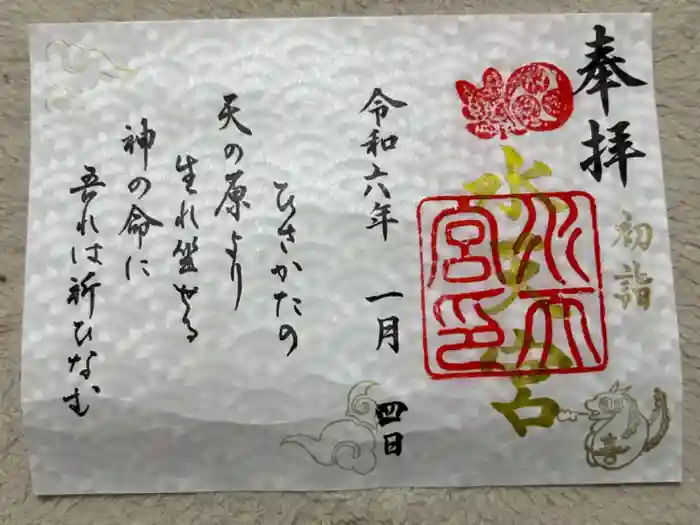 奉拝
初詣
水天宮
水天宮印
令和六年 一月 四日
ひさかたの
天の原より
生れ坐せる
神の命に
吾れは祈ひなむ